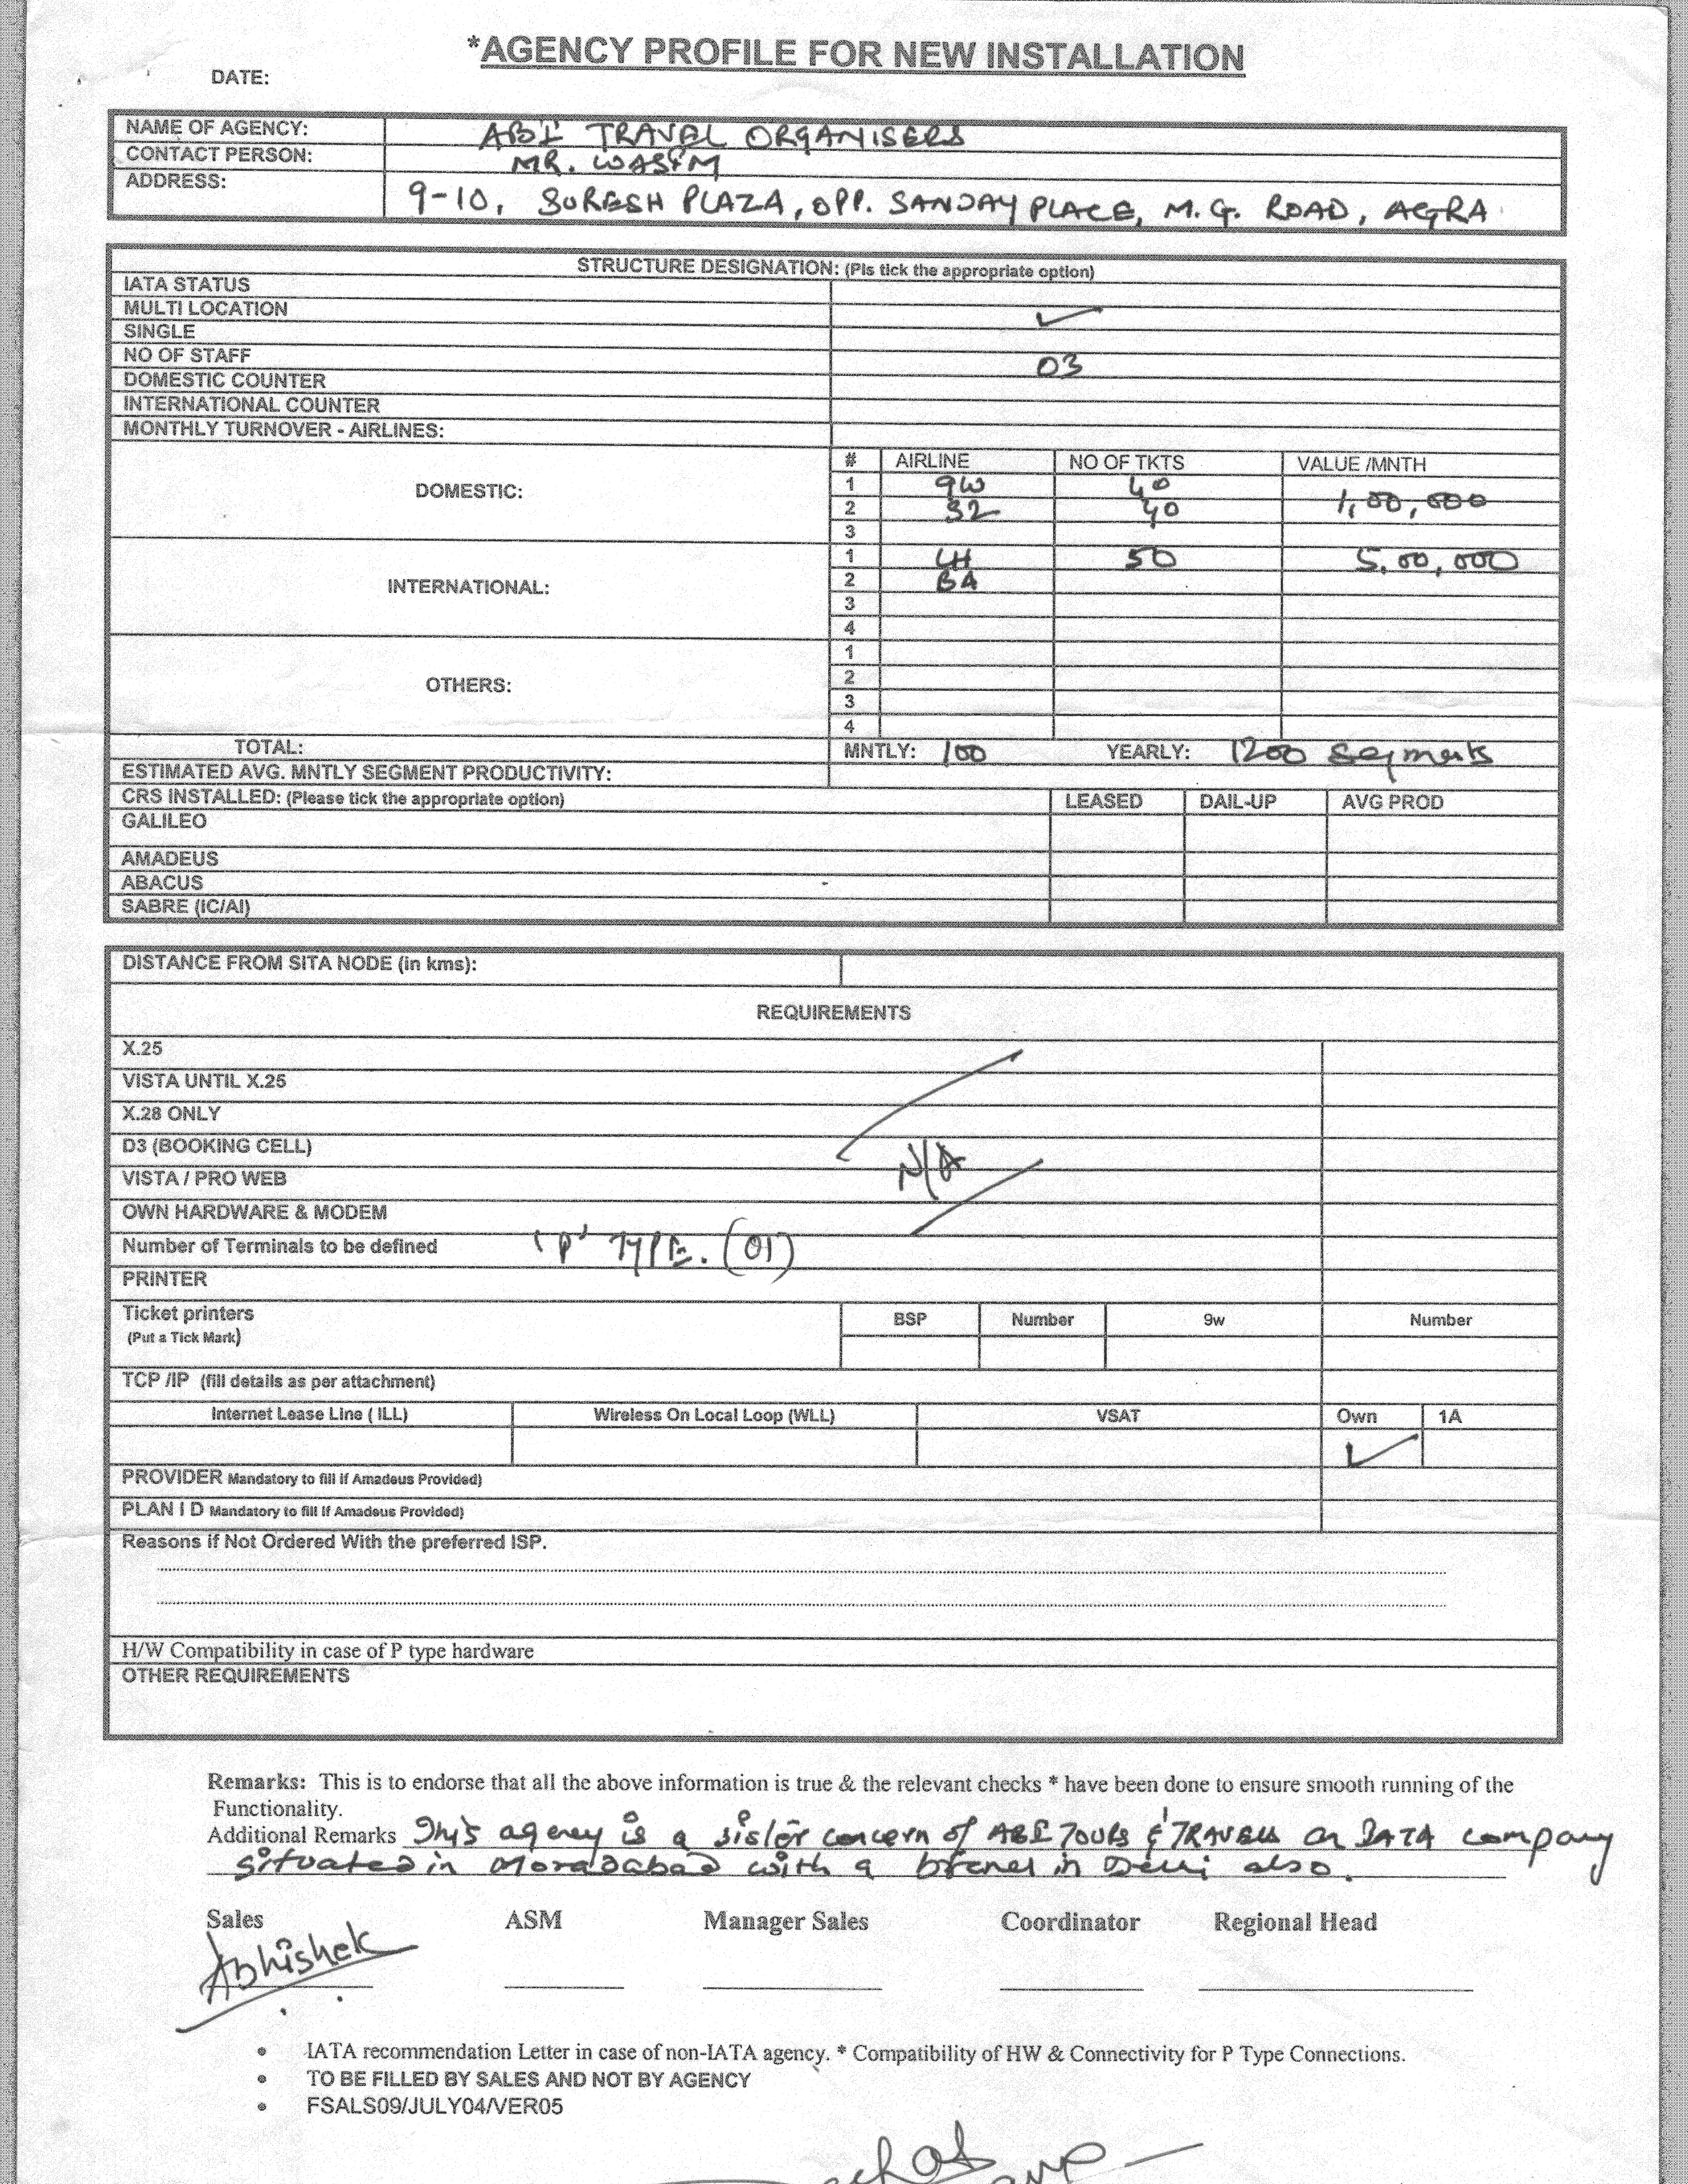 *AGENCY PROFILE FOR NEW INSTALLATION
DATE:
NAME OF AGENCY: ABI TRAVEL ORGANISERS
CONTACT PERSON: MR. WASIM
ADDRESS: 9-10, SURESH PLAZA, OPP. SANJAY PLACE, M.G. ROAD, AGRA
STRUCTURE DESIGNATION: (Pls tick the appropriate option)
IATA STATUS
MULTI LOCATION ✓
SINGLE
NO OF STAFF 03
DOMESTIC COUNTER
INTERNATIONAL COUNTER
MONTHLY TURNOVER - AIRLINES:
# AIRLINE NO OF TKTS VALUE /MNTH
DOMESTIC:
1 9W 40
2 S2 40 1,00,000
3
INTERNATIONAL:
1 LH 50 5,00,000
2 BA
3
4
OTHERS:
1
2
3
4
TOTAL: MNTLY: 100 YEARLY: 1200 Segments
ESTIMATED AVG. MNTLY SEGMENT PRODUCTIVITY:
CRS INSTALLED: (Please tick the appropriate option) LEASED DAIL-UP AVG PROD
GALILEO
AMADEUS
ABACUS
SABRE (IC/AI)
DISTANCE FROM SITA NODE (in kms):
REQUIREMENTS
X.25
VISTA UNTIL X.25
X.28 ONLY
D3 (BOOKING CELL)
VISTA / PRO WEB N/A
OWN HARDWARE & MODEM
Number of Terminals to be defined 'P' TYPE. (01)
PRINTER
Ticket printers BSP Number 9w Number
(Put a Tick Mark)
TCP /IP (fill details as per attachment)
Internet Lease Line ( ILL) Wireless On Local Loop (WLL) VSAT Own 1A
✓
PROVIDER Mandatory to fill if Amadeus Provided)
PLAN I D Mandatory to fill if Amadeus Provided)
Reasons if Not Ordered With the preferred ISP.
H/W Compatibility in case of P type hardware
OTHER REQUIREMENTS
Remarks: This is to endorse that all the above information is true & the relevant checks * have been done to ensure smooth running of the
Functionality.
Additional Remarks This agency is a sister concern of ABI TOURS & TRAVELS an IATA company
situated in Moradabad with a branch in Delhi also.
Sales ASM Manager Sales Coordinator Regional Head
Abhishek
• IATA recommendation Letter in case of non-IATA agency. * Compatibility of HW & Connectivity for P Type Connections.
• TO BE FILLED BY SALES AND NOT BY AGENCY
• FSALS09/JULY04/VER05